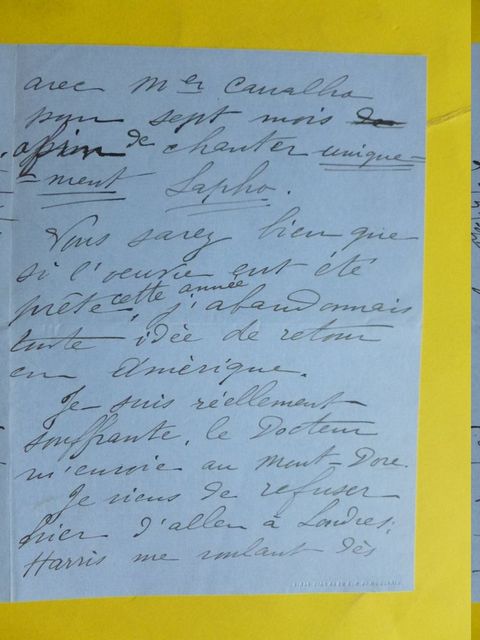 avec Mer Carvalho
pour sept mois de
afin de chanter unique=
=ment Sapho.
Vous savez bien que
si l'oeuvre eut été
prête cette année, j'abandonnais
toute idée de retour
en Amérique.
Je suis réellement
souffrante, le Docteur
m'envoie au Mont-Dore.
Je viens de refuser
hier d'aller à Londres;
Harris me voulant dès